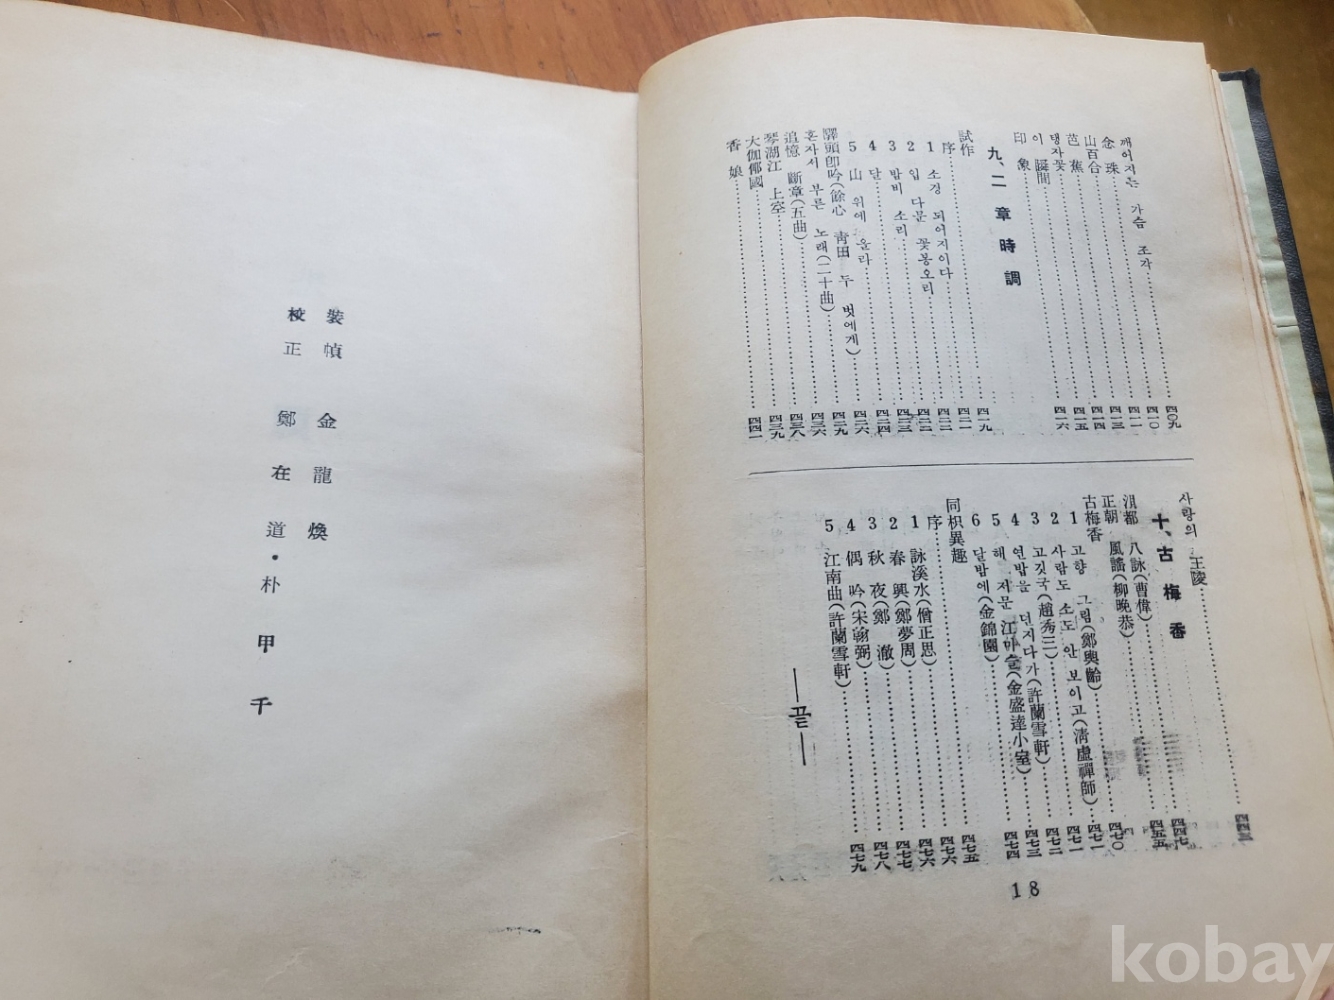 깨어지는 가슴 조각……四〇九
念珠……四一〇
山百合……四一一
芭蕉……四一三
탱자꽃……四一四
이 瞬間……四一五
印象……四一六
九、二章時調
試作
序……四一九
1 소경 되어지이다……四二一
2 입 다문 꽃봉오리……四二二
3 밤비 소리……四二二
4 달……四二三
5 山 위에 올라……四二四
驛頭卽吟(餘心 靑田 두 벗에게)……四二六
혼자서 부른 노래(二十曲)……四二九
追憶 斷章(五曲)……四三六
琴湖江 上空……四三八
大伽倻國……四三九
香娘……四四一
사랑의 王陵……四四三
十、古梅香
都 八詠(曹偉)……四四七
正朝 風謠(柳晩恭)……四五五
古梅香
1 고향 그림(鄭興齡)……四七〇
2 사람도 소도 안 보이고(淸虛禪師)……四七一
3 고깃국(趙秀三)……四七一
4 연밥을 던지다가(許蘭雪軒)……四七二
5 해 저문 江마을(金盛達小室)……四七三
6 달밤에(金錦園)……四七四
同枳異趣
序……四七五
1 詠溪水(僧正思)……四七六
2 春興(鄭夢周)……四七六
3 秋夜(鄭澈)……四七七
4 偶吟(宋翰弼)……四七八
5 江南曲(許蘭雪軒)……四七九
―끝―
18
裝幀 金龍煥
校正 鄭在道・朴甲千
kobay